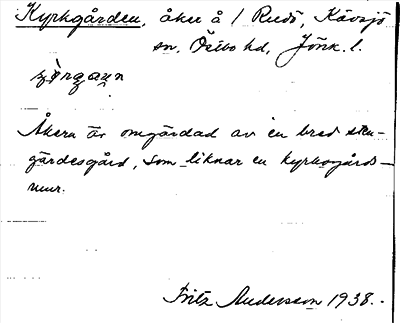 Kyrkgården, åker å 1 Rudö, Kävsjö
sn, Östbo hd, Jönk. l.
Åkern är omgärdad av en bred sten-
gärdesgård, som liknar en kyrkogårds-
mur.
Fritz Andersson 1938.